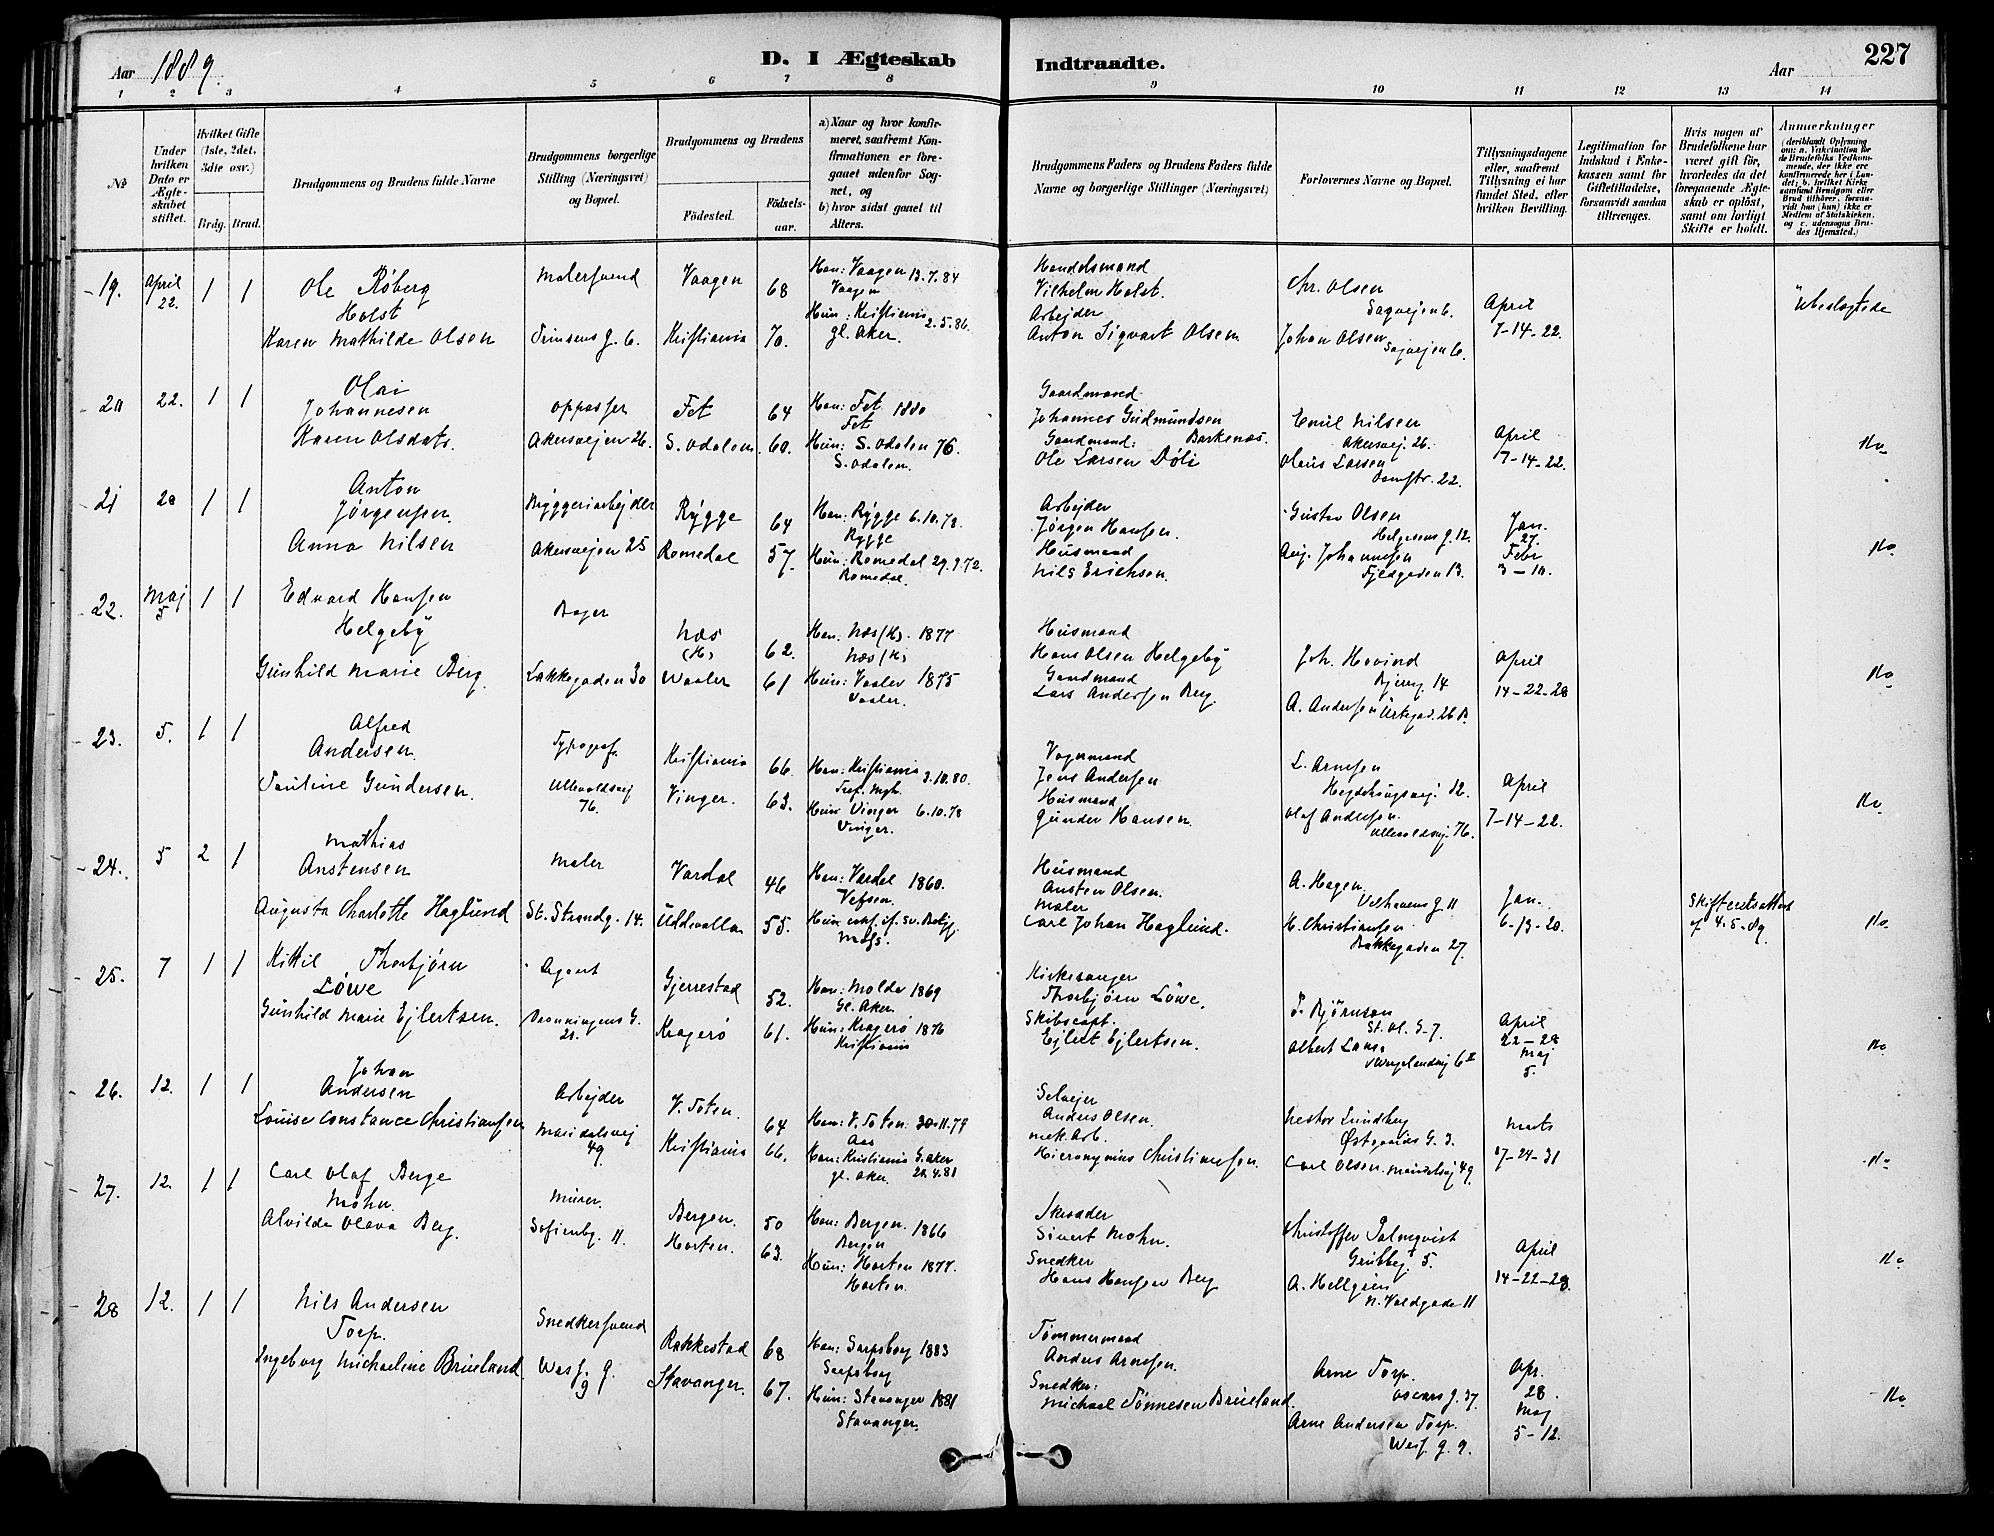 Aar 1889.
D. I Ægteskab Indtraadte.
Aar
227
1 2 3 4 5 6 7 8 9 10 11 12 13 14
No
Under hvilken Dato er Ægteskabet stiftet.
Hvilket Gifte (1ste, 2det, 3die osv.)
Brdg. Brud.
Brudgommens og Brudens fulde Navne
Brudgommens borgerlige Stilling (Næringsvei) og Bopæl.
Brudgommens og Brudens
Födested. Födsels-aar.
a) Naar og hvor konfirmeret, saafremt Konfirmationen er foregaaet udenfor Sognet, og
b) hvor sidst gaaet til Alters.
Brudgommens Faders og Brudens Faders fulde Navne og borgerlige Stillinger (Næringsvei)
Forlovernes Navne og Bopæl.
Tillysningsdagene eller, saafremt Tillysning ei har fundet Sted, efter hvilken Bevilling.
Legitimation for Indskud i Enkekassen samt for Giftetilladelse, forsaavidt saadan tiltrænges.
Hvis nogen af Brudefolkene har været gift för, hvorledes da det foregaaende Ægteskab er oplöst, samt om lovligt Skifte er holdt.
Anmerkninger (deriblandt Oplysning om: a. Vakcination for de Brudefolks Vedkommende, der ikke ere konfirmerede her i Landet; b. hvilket Kirkesamfund Brudgom eller Brud tilhörer, forsaavidt han (hun) ikke er Medlem af Statskirken, og c. udensogns Brudes Hjemsted.)
19. April 22. 1 1 Ole Röberg Holst Malersvend Vaagen 68 Han: Vaagen 13.7.84 Vaagen
Karen Mathilde Olsen g. 6. Kristiania 70. Hun: Kristiania 2.5.86. gl. Aker.
Handelsmand Vilhelm Holst. Chr. Olsen Sagvejen 6. April 7-14-22. Ubeslægtede
Arbejder Anton Sigvart Olsen Johan Olsen Sagvejen 6.
20 22. 1 1 Olai Johannesen Oppasser Fet 64 Han: Fet 1880 Fet
Karen Olsdatr. Akersvejen 26. S. Odalen 60. Hun: S. Odalen 76. S. Odalen.
Gaardmand Johannes Gudmundsen Barkenæs. Emil Nilsen Akersvej. 26. April 7-14-22. No
Gaardmand: Ole Larsen Döli Olaus Larsen 22.
21 28 1 1 Anton Jörgensen. Bryggeriarbejder Rygge 64 Han: Rygge 6.10.78. Rygge
Anna Nilsen Akersvejen 25 Romedal 57. Hun: Romedal 29.9.72. Romedal.
Arbejder Jörgen Hansen. Gustav Olsen Helgesens g. 12. Jan. 27. Febr 3-10. No
Husmand Nils Erichsen. Aug. Johannesen Fjeldgaden 13.
22. Maj 5 1 1 Edvard Hansen Helgeby Bager Næs (H) 62. Han. Næs (H). 1877 Næs (H)
Gunhild Marie Berg. Lakkegaden 30 Waaler 61 Hun: Vaaler 1875 Vaaler.
Husmand Hans Olsen Helgeby Joh. Hovind 14 April 14-22-28 No
Gaardmand Lars Andersen Berg. A. Andersen Urtegad. 26 B.
23. 5. 1 1 Alfred Andersen. Typograf. Kristiania 66. Han: Kristiania 3.10.80. Tref. Mgh.
Pauline Gundersen. Ullevoldsvej 76. Vinger. 63. Hun Vinger 6.10.78 Vinger.
Vognmand Jens Andersen L. Arnesen 12. April 7-14-22. No
Husmand Gunder Hansen. Olaf Andersen. Ullevoldsvej. 76.
24. 5 2 1 Mathias Anstensen Maler Vardal 46 Han: Vardal 1860. Vefsen.
Augusta Charlotte Haglund St. Strandg. 14. Uddevalla 55. Hun Moss.
Husmand Ansten Olsen. A. Hagen Velhavens g. 11 Jan. 6-13-20. Skifteretsattest af 4.5.89. No
Maler Carl Johan Haglund. H. Christiansen Bakkegaden 27.
25. 7 1 1 Kittil Thorbjörn Löwe Agent Gjerrestad 52. Han: Molde 1869 Gl. Aker.
Gunhild Marie Ejlertsen. Dronningens G. 21. Kragerö 61. Hun: Kragerö 1876 Kristiania
Kirkesanger Thorbjörn Löwe. P. Björnson St. Ol. G. 7. April 22-28 Maj 5. No
Skibscapt. Ejlert Ejlertsen. Albert 6 II
26. 12. 1 1 Johan Andersen Arbejder V. Toten. 64 Han: V. Toten. 30-11.79 Aas
Louise Constance Christiansen Maridalsvej 49 Kristiania 66. Hun: Kristiania G. Aker gl. Aker. 24.4.81
Selvejer Anders Olsen. Nestor Lundberg G. 3. Marts 17-24-31 No
mek. Arb. Hieronymus Christiansen. Carl Olsen. Maridalsvej 49.
27. 12. 1 1 Carl Olaf Berge Mohn. Murer. Bergen. 50 Han: Bergen. 1866 Bergen
Alvilde Olava Berg. Sofienbg. 11. Horten. 63. Hun: Horten 1877. Horten.
Skrædder Sivert Mohn. Christoffer Palmqvist 5. April 14-22-28. No
Snedker Hans Hansen Berg A. Hellgren N. Voldgade 11
28 12. 1 1 Nils Andersen Torp. Snedkersvend Rakkestad 68 Han: Sarpsborg 1883 Sarpsborg
Ingeborg Michaeline Brueland. Wess. g. 9 Stavanger. 67. Hun: Stavanger 1881 Stavanger.
Tömmermand Anders Arnesen. Arne Torp. Oscars g. 37. Apr. 28. Maj 5-12. No
Snedker: Michael Tönnesen Brueland. Arne Andersen Torp. Wess. g. 9.